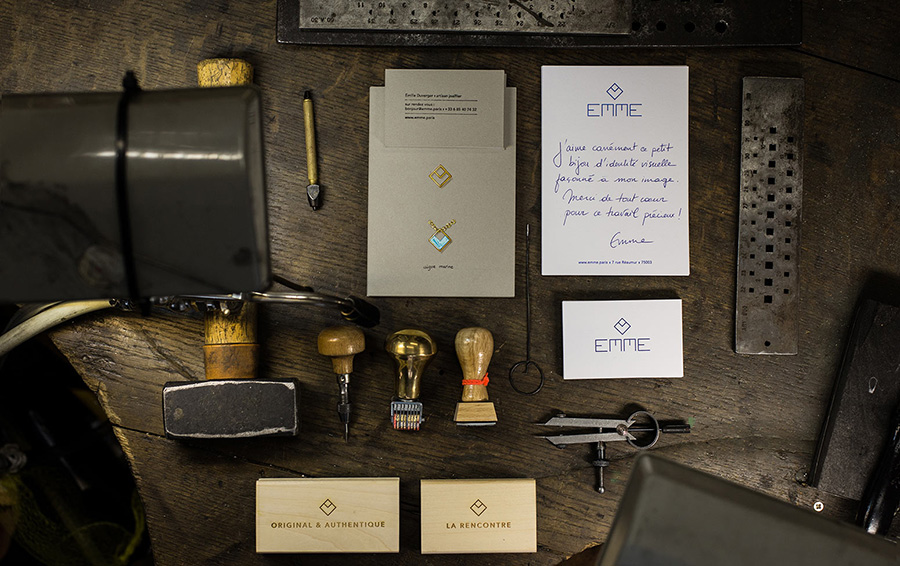 Emilie Duverger • artisan joaillier
sur rendez-vous :
www.emme.paris
aigue marine
EMME
J'aime carrément ce petit
bijou d'identité visuelle
façonné à mon image.
Merci de tout cœur
pour ce travail précieux !
Emme
www.emme.paris • 7 rue Réaumur • 75003
EMME
ORIGINAL & AUTHENTIQUE
LA RENCONTRE